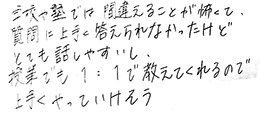 学校や塾では間違えることが怖くて、
質問に上手く答えられなかったけど
とても話しやすいし、
授業でも1:1で教えてくれるので
上手くやっていけそう